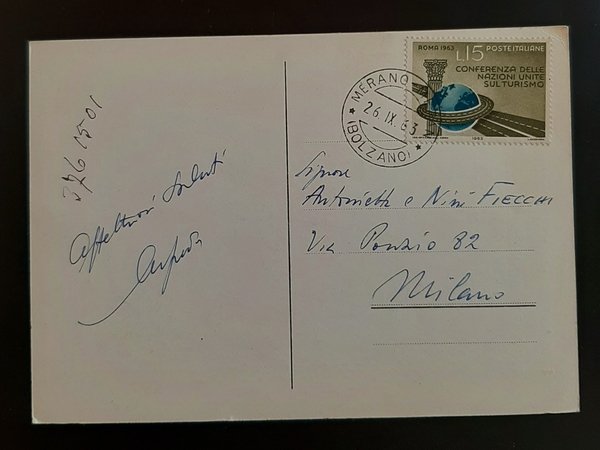 ROMA 1963 POSTE ITALIANE
L.15
CONFERENZA DELLE
NAZIONI UNITE
SUL TURISMO
1963
MERANO
26.IX.63
(BOLZANO)
376 1501
Affettuosi Saluti
Signore
Antonietta e Nini FIECCHI
Via Ponzio 82
Milano